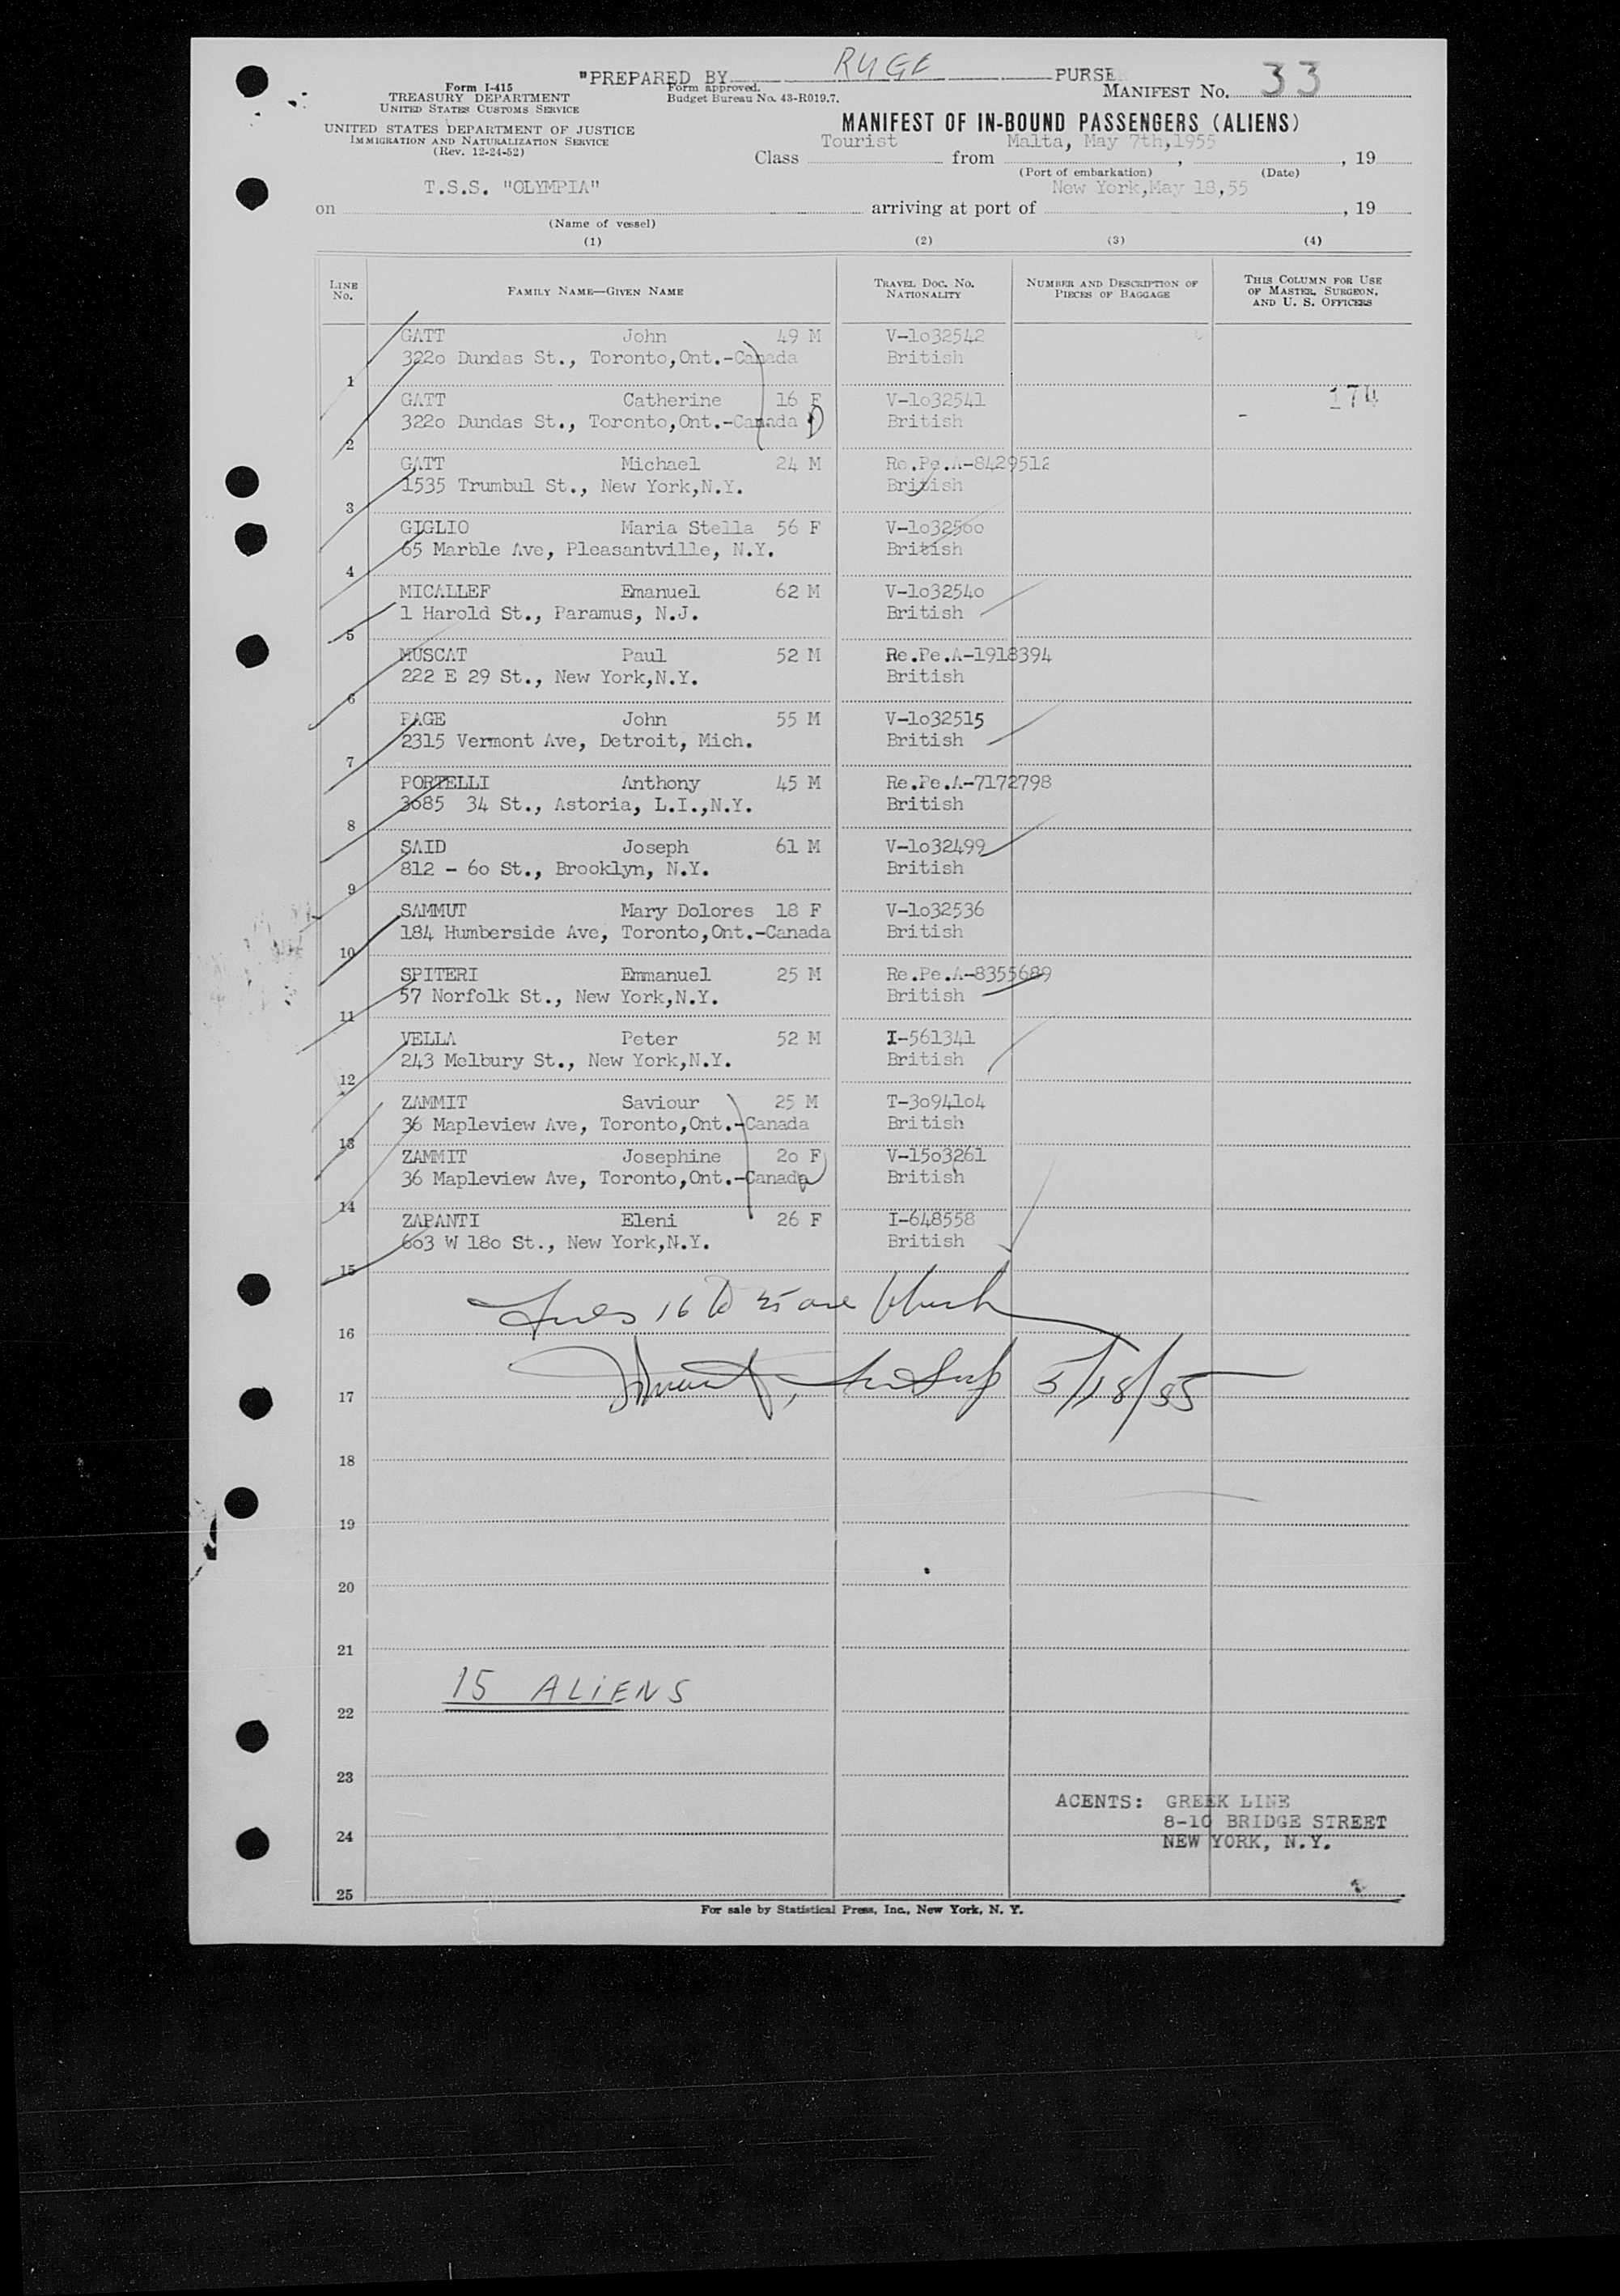 "PREPARED BY RUGE PURSE
Form I-415
TREASURY DEPARTMENT
UNITED STATES CUSTOMS SERVICE
Form approved.
Budget Bureau No. 43-R019.7.
MANIFEST No. 33
UNITED STATES DEPARTMENT OF JUSTICE
IMMIGRATION AND NATURALIZATION SERVICE
(Rev. 12-24-52)
MANIFEST OF IN-BOUND PASSENGERS (ALIENS)
Class Tourist from Malta, May 7th,1955, , 19
(Port of embarkation) (Date)
on T.S.S. "OLYMPIA" arriving at port of New York,May 18,55, 19
(Name of vessel)
(1) (2) (3) (4)
LINE No. FAMILY NAME—GIVEN NAME TRAVEL DOC. No. NATIONALITY NUMBER AND DESCRIPTION OF PIECES OF BAGGAGE THIS COLUMN FOR USE OF MASTER, SURGEON, AND U. S. OFFICERS
GATT John 49 M V-1o32542
322o Dundas St., Toronto,Ont.-Canada British
1
GATT Catherine 16 F V-1o32541 174
322o Dundas St., Toronto,Ont.-Canada British -
2
GATT Michael 24 M Re.Pe.A-8429512
1535 Trumbul St., New York,N.Y. British
3
GIGLIO Maria Stella 56 F V-1o32560
65 Marble Ave, Pleasantville, N.Y. British
4
MICALLEF Emanuel 62 M V-1o3254o
1 Harold St., Paramus, N.J. British
5
MUSCAT Paul 52 M Re.Pe.A-1918394
222 E 29 St., New York,N.Y. British
6
PAGE John 55 M V-1o32515
2315 Vermont Ave, Detroit, Mich. British
7
PORTELLI Anthony 45 M Re.Pe.A-7172798
3o85 34 St., Astoria, L.I.,N.Y. British
8
SAID Joseph 61 M V-1o32499
812 - 6o St., Brooklyn, N.Y. British
9
SAMMUT Mary Dolores 18 F V-1o32536
184 Humberside Ave, Toronto,Ont.-Canada British
10
SPITERI Emmanuel 25 M Re.Pe.A-8355689
57 Norfolk St., New York,N.Y. British
11
VELLA Peter 52 M I-561341
243 Melbury St., New York,N.Y. British
12
ZAMMIT Saviour 25 M T-3o941o4
36 Mapleview Ave, Toronto,Ont.-Canada British
13
ZAMMIT Josephine 2o F V-15o3261
36 Mapleview Ave, Toronto,Ont.-Canada British
14
ZAPANTI Eleni 26 F I-648558
6o3 W 18o St., New York,N.Y. British
15
Lines 16 to 25 are blank
16
5/18/55
17
18
19
20
21
15 ALIENS
22
23
AGENTS: GREEK LINE
8-10 BRIDGE STREET
24
NEW YORK, N.Y.
25
For sale by Statistical Press, Inc., New York, N. Y.